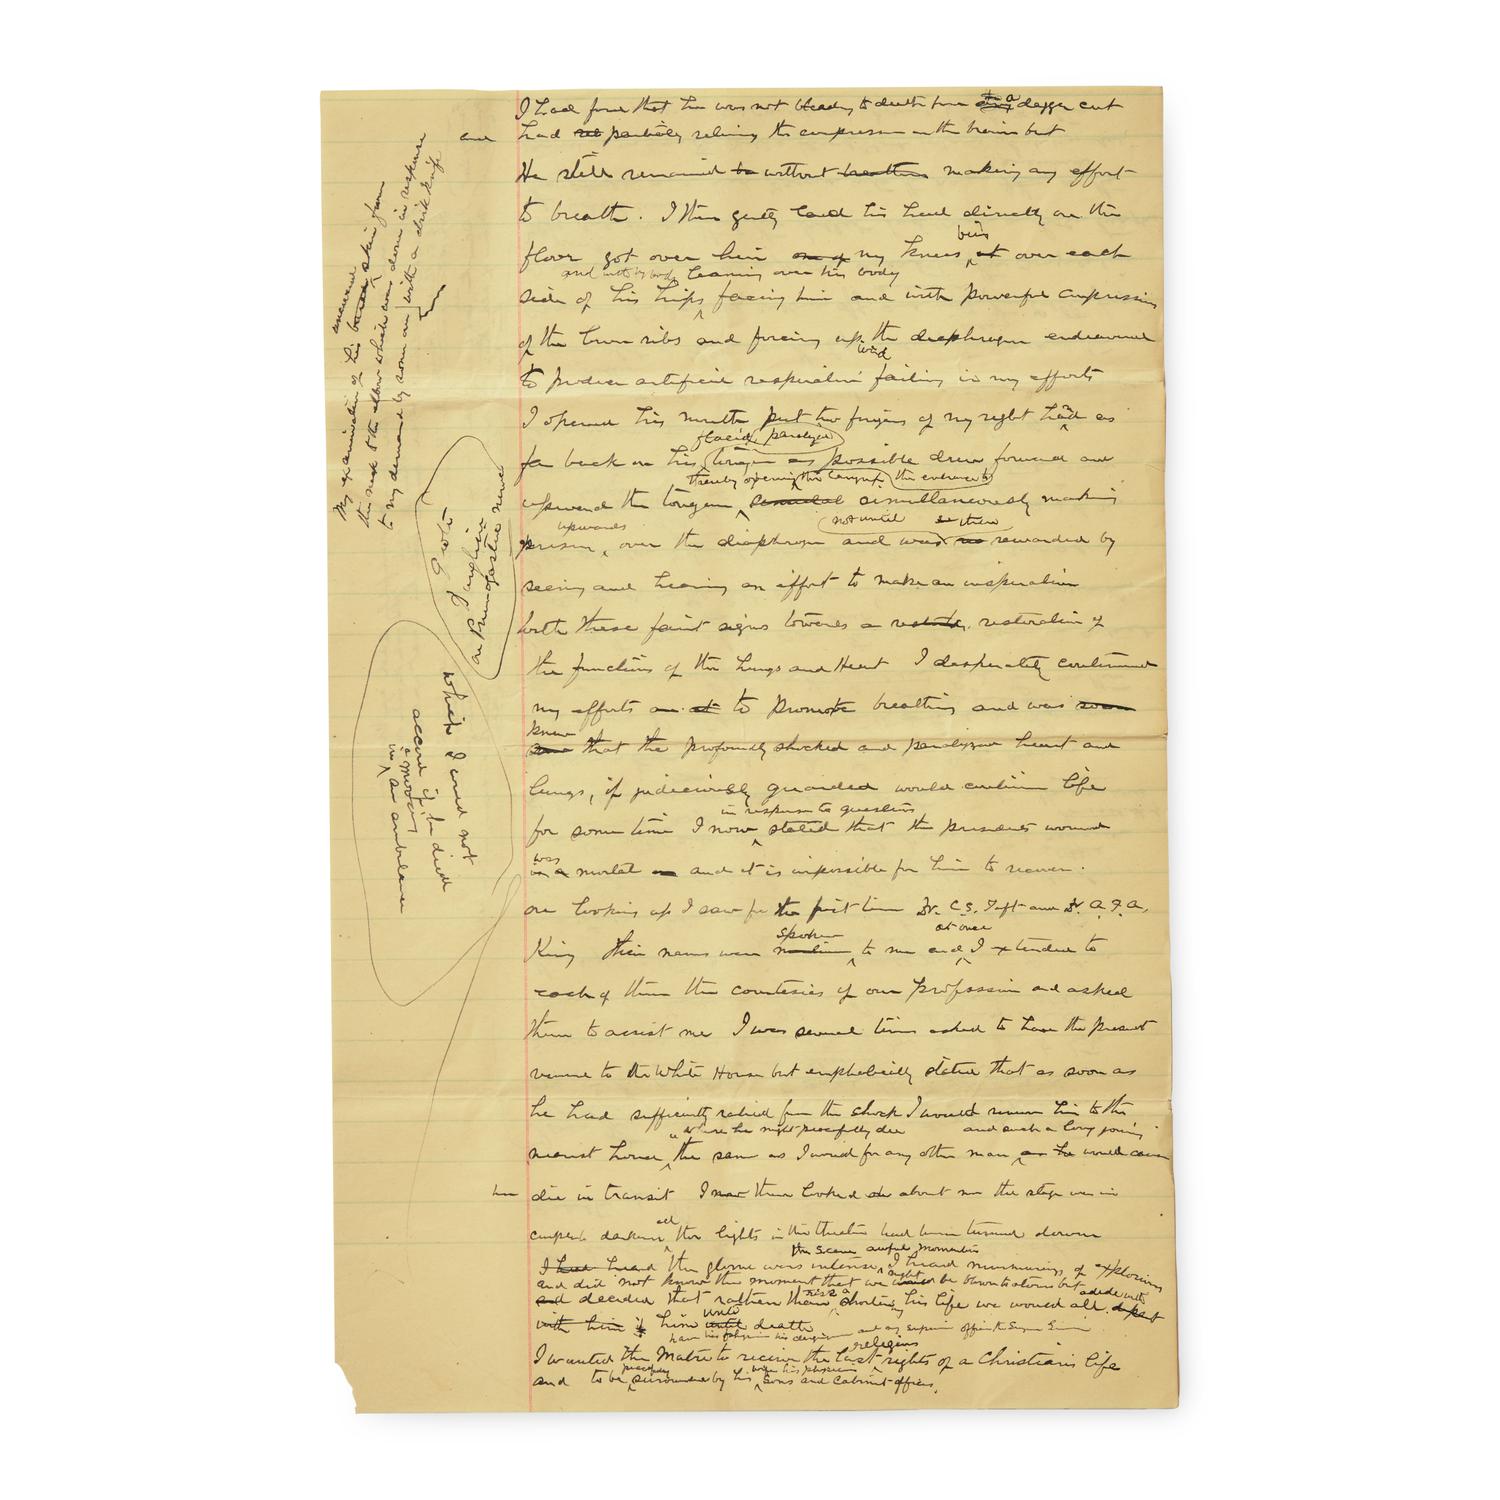 I had found that he was not bleeding to death from a dagger cut
and had partially relieving the compression on the brain but
He still remained without making any effort
to breath. I then gently laid his head directly on the
floor got over him my knees being over each
and with my body leaning over his body
side of his hips facing him and with powerful compression
of the lower ribs and forcing up the diaphragm endeavoured
to produce artificial respiration failing in my efforts
I opened his mouth put two fingers of my right hand as
flacid paralyzed
far back on his tongue as possible drew forward and
thereby opening the larynx the entrance to
upward the tongue simultaneously making
upwards not until then
pressure over the diaphragm and was rewarded by
seeing and hearing an effort to make an inspiration
with these faint signs towards a restoration of
the functions of the Lungs and Heart I desperately continued
my efforts to promote breathing and was soon
knew
that the profoundly shocked and paralyzed heart and
lungs, if judiciously guarded would continue life
in response to questions
for some time I now stated that the presidents wound
was mortal and it is impossible for him to recover.
on looking up I saw for the first time Dr. C.S. Taft and Dr. A.F.A.
spoken at once
King their names were to me and I extended to
each of them the courtesies of our profession and asked
them to assist me I was several times asked to have the President
removed to the White House but emphatically stated that as soon as
he had sufficiently rallied from the shock I would remove him to the
where he might peacefully die and such a long journey
nearest house the same as I would for any other man as he would
die in transit I then looked about me the stage was in
all
complete darkness the lights in the theatre had been turned down
the scene awful moments
I had heard the gloom was intense I heard murmurings of explosions
and did not know the moment that we might be blown to atoms but
and decided that rather than risk shortening his life we would all
with him until death
I wanted the Master to receive the last religious rights of a Christian's life
and to be peacefully surrounded by his Sons and Cabinet officers.
My examination of his skin from
the neck to the elbow which was done in response
to my demand by some one with a dirk knife
go into
which I would not
accord if he died
in a moving ambulance